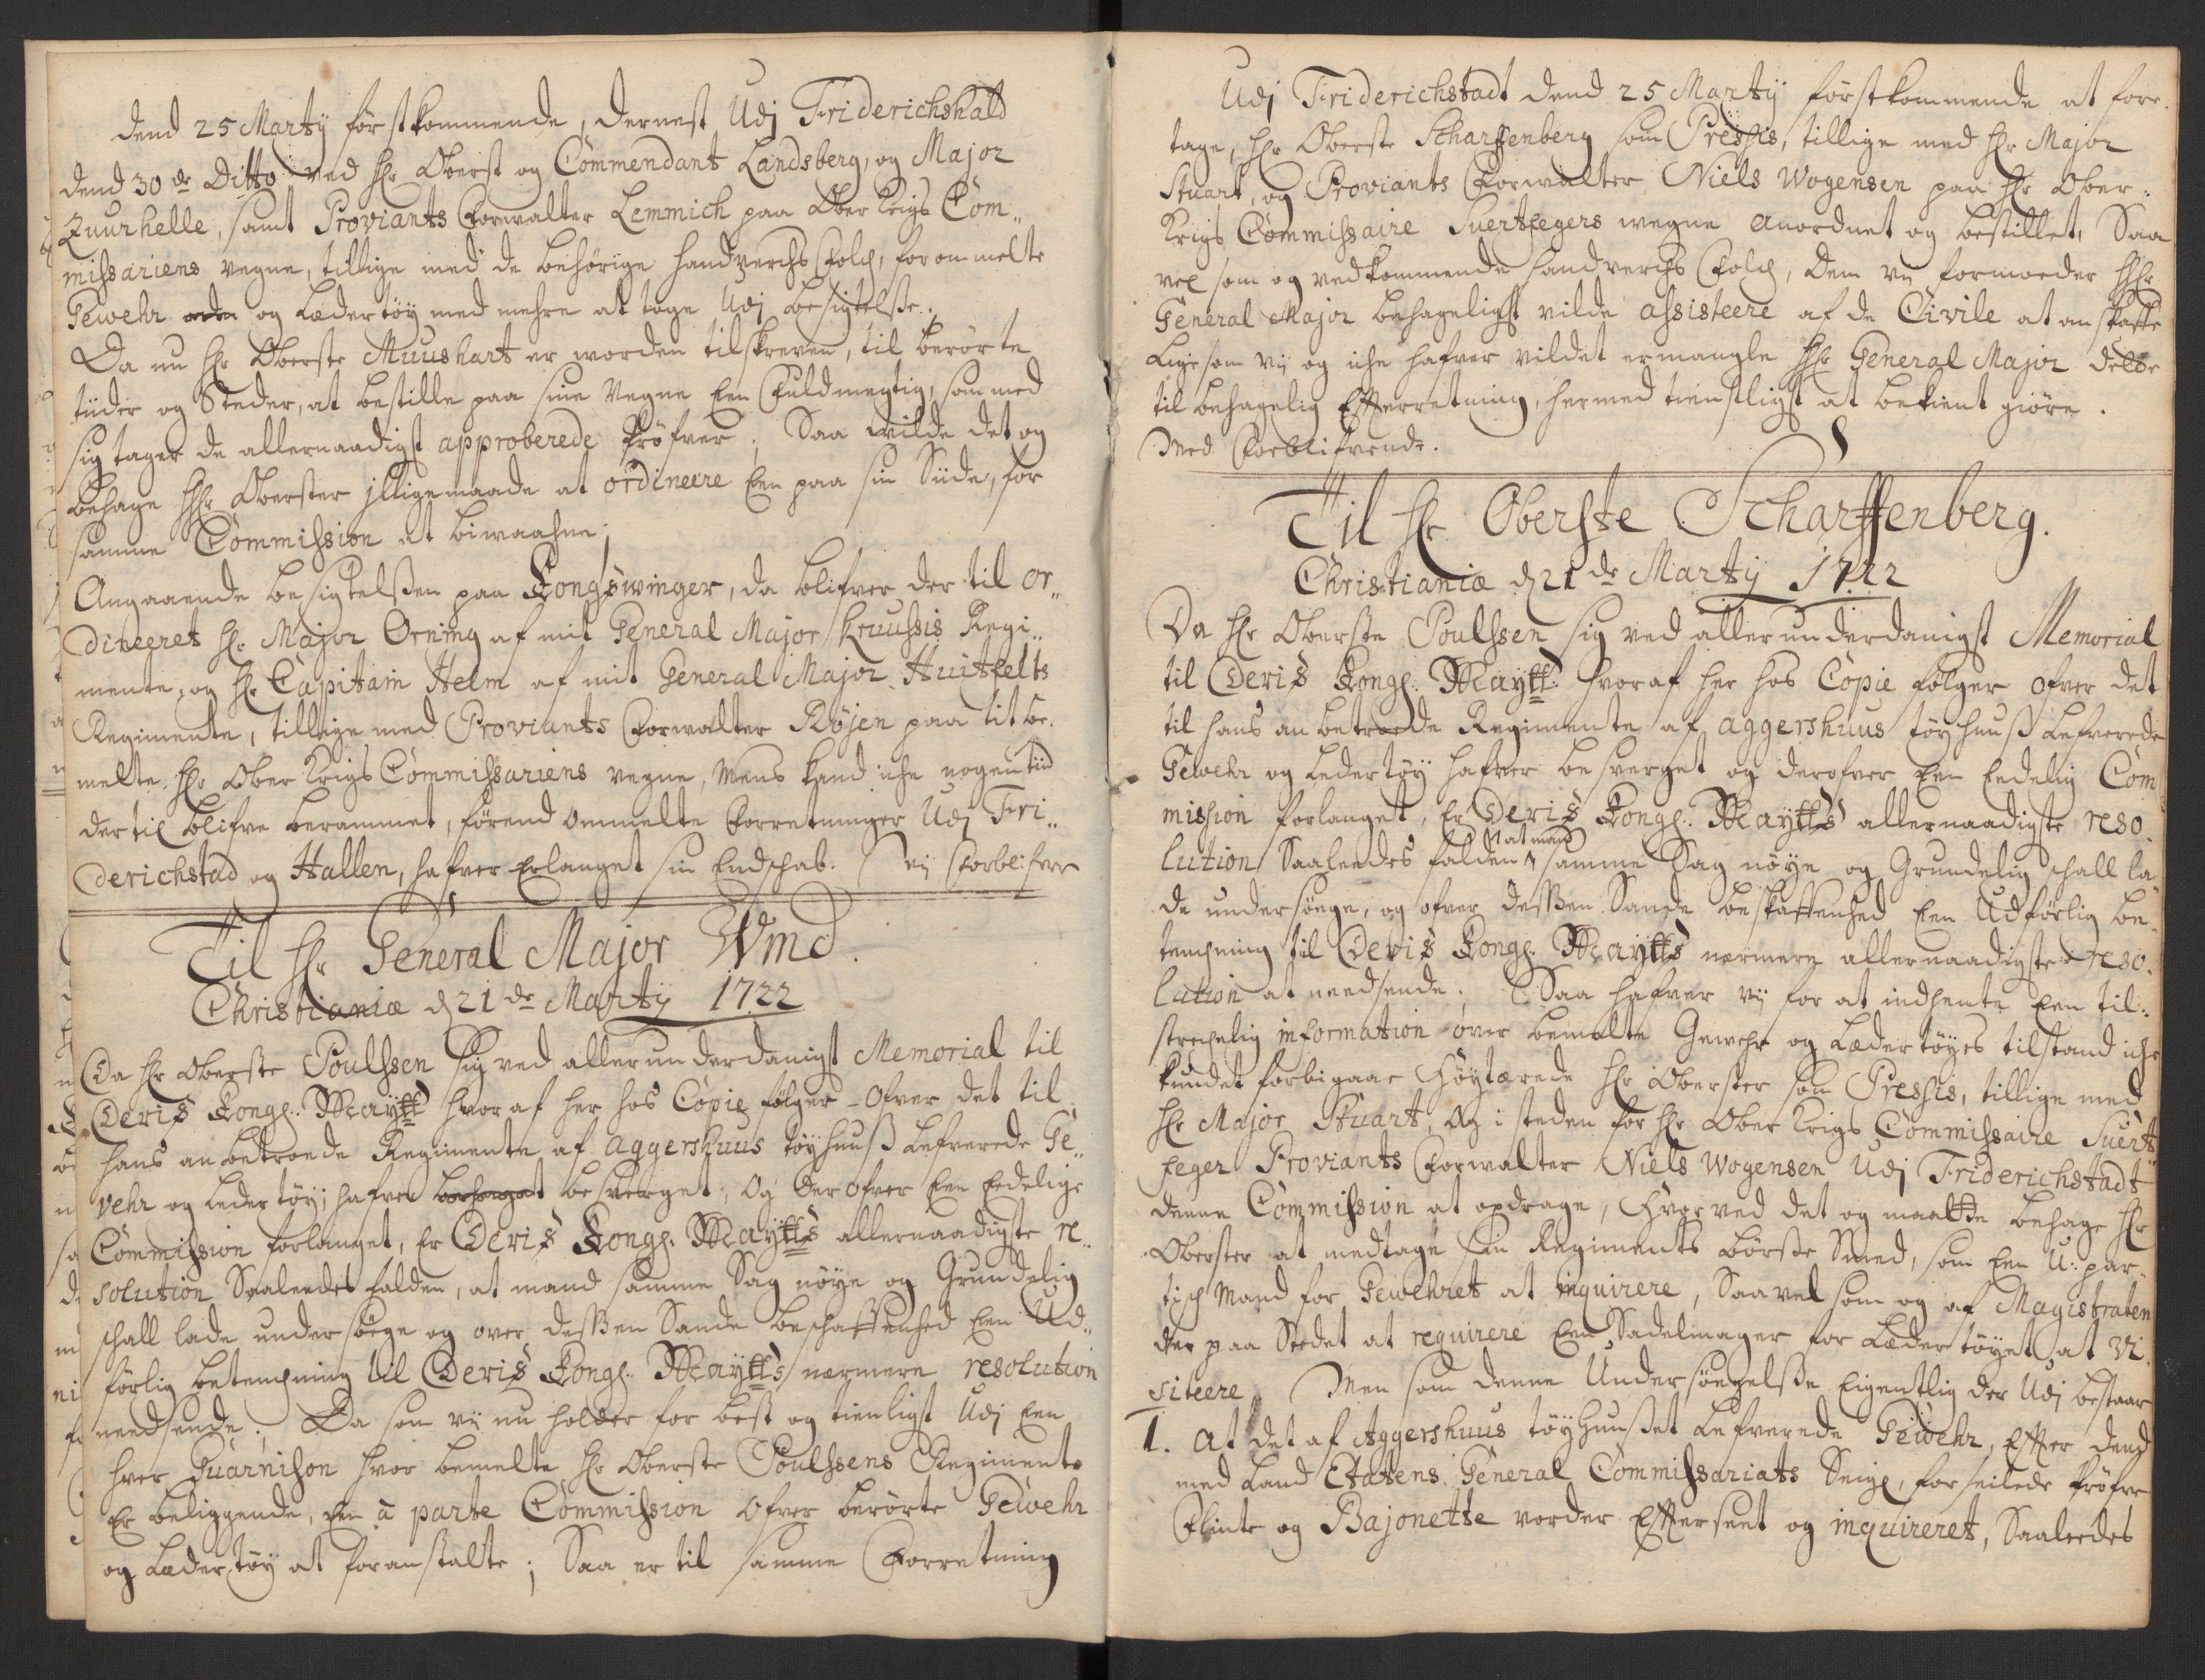 dend 25 Martij førstkommende, dernest Udj Friderichshald
dend 30de Ditto ved Hr Oberst og Commendant Landsberg, og Major
Zuurhelle, samt Proviants Forwalter Lemmich paa Ober Krigs Com„
missariens vegne, tillige med de behørige Handverchs Folch, for ommelte
Gewehr og Lædertøy med mehre at tage Udj besigtelse.
Da nu Hr Oberste Muushart er worden tilskreven, til berørte
tiider og Steder, at bestille paa sine Vegne Een Fuldmegtig, som med
sig tager de allernaadigst approberede Prøfver; Saa wilde det og
behage HHr Oberster jlligemaade at ordineere Een paa sin Siide, for
samme Commission at biwaahne;
Angaaende besigtelsen paa Kongswinger, da blifver der til or„
dineeret Hr Major Örning af mit General Major Kruusis Regi„
mente, og Hr Capitain Helm af mit General Major Huitfelts
Regimente, tillige med Proviants Forwalter Röjen paa tit be„
melte Hr Ober Krigs Commissariens vegne, Mens kand iche nogen tiid
der til blifve berammet, førend ommelte Forretninger Udj Fri„
derichstad og Hallen, hafver Erlanget sin Endschab. Vij Forblifver
Til Hr General Major Wmd.
Christianiæ d 21de Martij 1722
Da Hr Oberste Poulssen sig ved allerunderdanigst Memorial til
Deris Kongl. Maytt hvoraf her hos Copie følger - Ofver det til
hans anbetroede Regimente af Aggershuus tøyhuus Lefverede Ge„
vehr og Ledertøy, hafver besverget, Og derofver Een Endelige
Commission forlanget, Er Deris Kongl. Maytts allernaadigste re„
solution Saaleedes falden, at mand samme Sag nøye og Grundelig
schall lade undersøege og over dessen Sande beschaffenhed Een Ud„
førlig betenchning til Deris Kongl. Maytts nærmere resolution
needsende. Da som vij nu holder for best og tienligst Udj Een
hver Guarnison hvor bemelte Hr Oberste Poulssens Regimente
Er beliggende, Een à parte Commission Ofver berørte Gewehr
og Lædertøy at foranstalte; Saa er til samme Forretning
Udj Friderichstadt dend 25 Martij førstkommende at fore„
tage, Hr Oberste Scharffenberg som Præssis, tillige med Hr Major
Stuart, og Proviants Forwalter Niels Wogensen paa Hr Ober„
Krigs Commissaire Suertfegers wegne Anordnet og bestillet, Saa
vel som og vedkommende Handverchs Folch, Dem vij formoeder HHr
General Major behageligst vilde assisteere af de Civile at anskaffe
Lige som vij og iche hafver vildet ermangle HHr General Major dette
til behagelig Efterretning, hermed tienstligst at bekient giøre.
Med Forblifvende.
Til Hr Oberste Scharffenberg.
Christianiæ d 21de Martij 1722
Da Hr Oberste Poulssen sig ved allerunderdanigst Memorial
til Deris Kongl. Maytt hvoraf her hos Copie følger ofver det
til hans anbetroede Regimente af Aggershuus tøyhuus Lefverede
Gewehr og Ledertøy hafver besverget og derofver Een Endelig Com
mission forlanget, Er Deris Kongl. Maytts allernaadigste reso„
at mand
lution Saaleedes falden samme Sag nøye og Grundelig schall la„
de undersøege, og ofver dessen Sande beskaffenhed Een Udførlig be„
tenchning til Deris Kongl. Maytts nærmere allernaadigste reso„
lution at needsende. Saa hafver vij for at indhente Een til„
strechelig information over bemelte Gewehr og Lædertøyes tilstand iche
kundet forbigaae Høytærede Hr Oberster som Pressis, tillige med
Hr Major Stuart, Og i steden for Hr Ober Krigs Commissaire Suert„
feger Proviants Forwalter Niels Wogensen Udj Friderichstadt
denne Commission at opdrage, Hvorved det og maatte behage Hr
Oberster at medtage sin Regiments Børste Smed, som Een U-par„
tisch Mand for Gewehret at inquirere, Saavel som og af Magistraten
der paa Stedet at requirere Een Sadelmager for Lædertøyet at vi„
siteere. Men som denne Undersøegelse Eigentlig der Udj bestaar
1. At det af Aggershuus tøyhuuset Lefverede Gewehr, Efter dend
med Land Etatens General Commissariats Seigl, forseilede Prøfve
Flinte og Bajonette vorder Efterseet og inquireret, Saaleedes